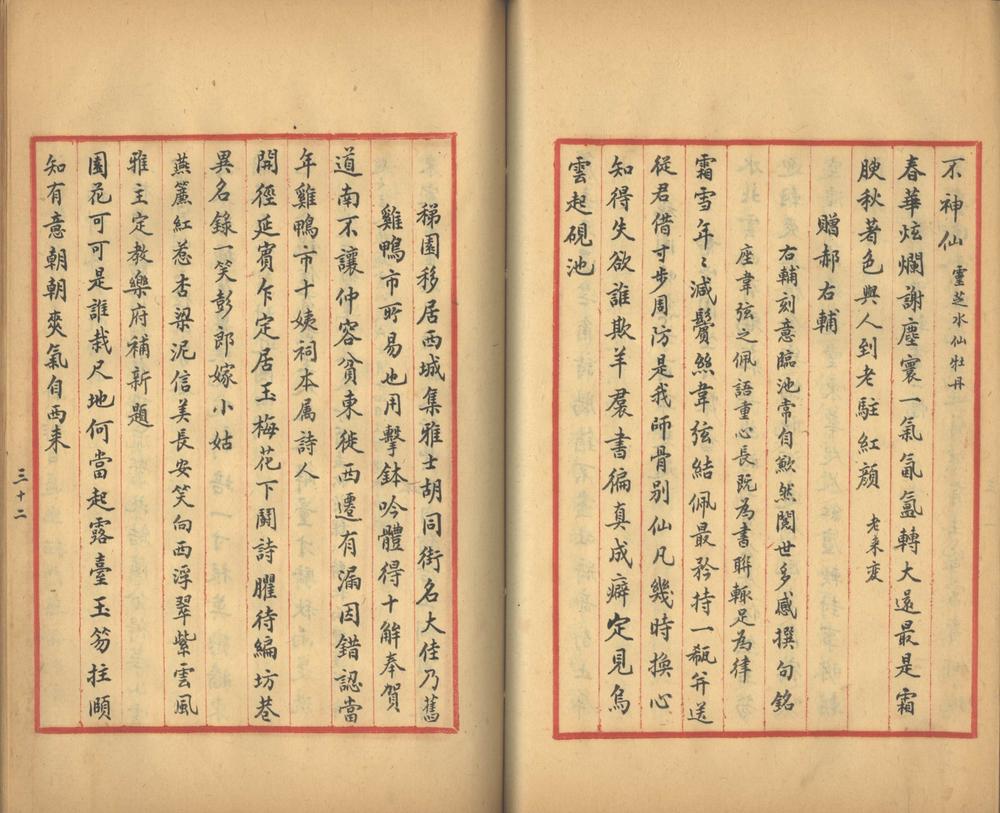 不神仙 靈芝水仙牡丹
春華炫爛謝塵寰一氣氤氳轉大還最是霜
腴秋著色與人到老駐紅顏 老来变
贈郝右輔
右輔刻意臨池常自歉然閱世多感撰句銘
座韋弦之佩語重心長既為書聯輒足為律
霜雪年〻減鬢絲韋弦結佩最矜持一瓻并送
從君借寸步周防是我師骨别仙凡幾時換心
知得失欲誰欺羊裠書徧真成癖定見烏
雲起硯池
稊園移居西城集雅士胡同街名大佳乃舊
雞鴨市所易也用擊鉢吟體得十解奉賀
道南不讓仲容貧東徙西遷有漏因錯認當
年雞鴨市十姨祠本属詩人
開徑延賓乍定居玉梅花下鬭詩臞待編坊巷
異名錄一笑彭郎嫁小姑
燕簾紅惹杏梁泥信美長安笑向西浮翠紫雲風
雅主定教樂府補新題
園花可可是誰栽尺地何當起露臺玉笏拄頤
知有意朝朝爽氣自西来
三十二